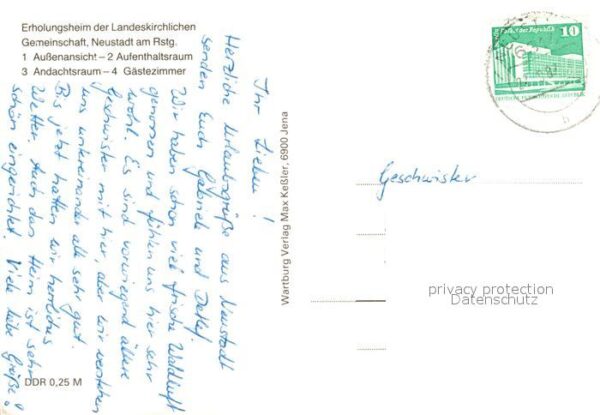 Erholungsheim der Landeskirchlichen
Gemeinschaft, Neustadt am Rstg.
1 Außenansicht – 2 Aufenthaltsraum
3 Andachtsraum – 4 Gästezimmer
Ihr Lieben!
Herzliche Urlaubsgrüße aus Neustadt
senden Euch Gabriele und Detlef
Wir haben schon viel frische Waldluft
genommen und fühlen uns hier sehr
wohl. Es sind vorwiegend ältere
Geschwister mit hier, aber wir verstehen
uns untereinander alle sehr gut.
Bis jetzt hatten wir herrliches
Wetter. Auch das Heim ist sehr
schön eingerichtet. Viele liebe Grüße!
DDR 0,25 M
Wartburg Verlag Max Keßler, 6900 Jena
10
Geschwister
privacy protection
Datenschutz